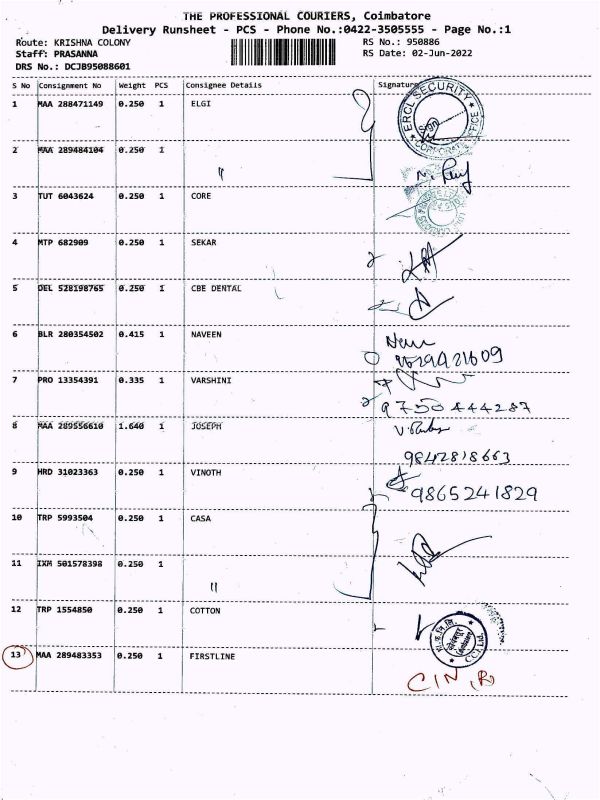 THE PROFESSIONAL COURIERS, Coimbatore
Delivery Runsheet - PCS - Phone No.:0422-3505555 - Page No.:1
Route: KRISHNA COLONY RS No.: 950886
Staff: PRASANNA RS Date: 02-Jun-2022
DRS No.: DCJB95088601
S No Consignment No Weight PCS Consignee Details Signature
1 MAA 288471149 0.250 1 ELGI
ERCL SECURITY
Sign
CORPORATE OFFICE
2 MAA 289484104 0.250 1 "
3 TUT 6043624 0.250 1 CORE
4 MTP 682909 0.250 1 SEKAR
5 DEL 528198765 0.250 1 CBE DENTAL
6 BLR 280354502 0.415 1 NAVEEN
7 PRO 13354391 0.335 1 VARSHINI
9750444287
8 MAA 289556610 1.640 1 JOSEPH
9842818663
9 HRD 31023363 0.250 1 VINOTH
9865241829
10 TRP 5993504 0.250 1 CASA
11 IXM 501578398 0.250 1 "
12 TRP 1554850 0.250 1 COTTON
13 MAA 289483353 0.250 1 FIRSTLINE